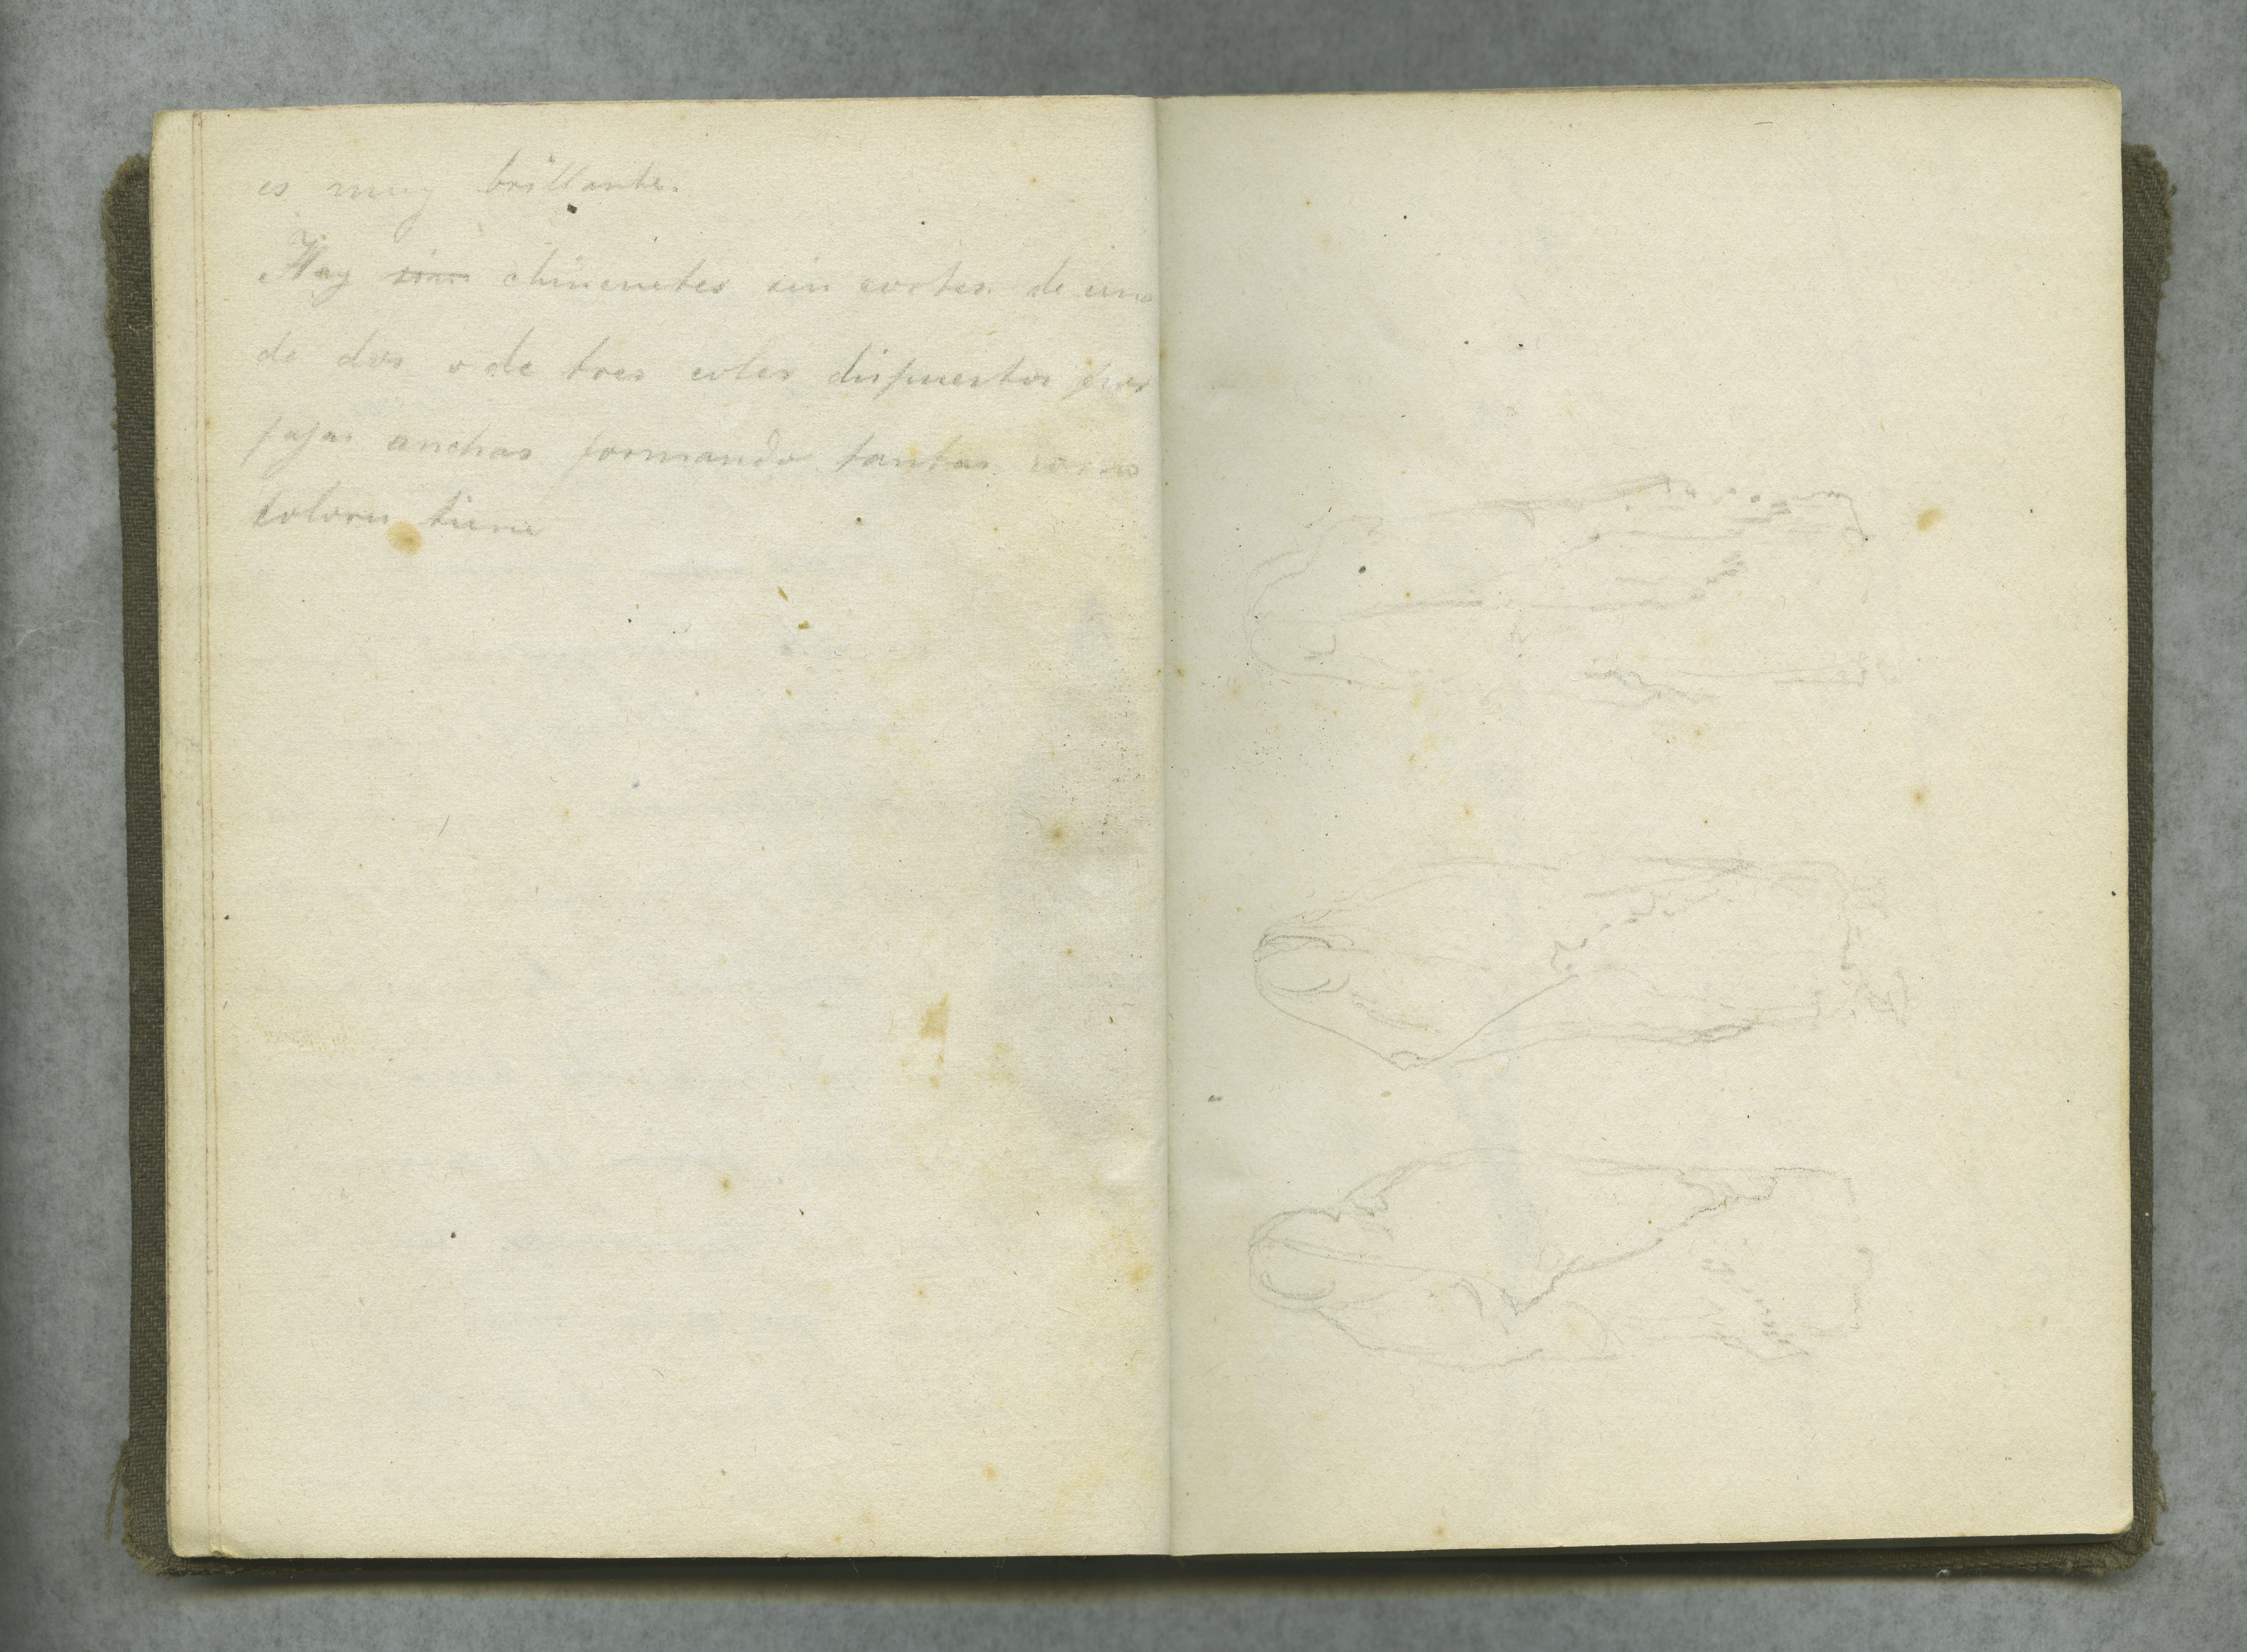 es muy brillante.
Hay chincuetes sin cortes de uno
de dos o de tres coles dispuestos por
fajas anchas formando tantas como
colores tiene